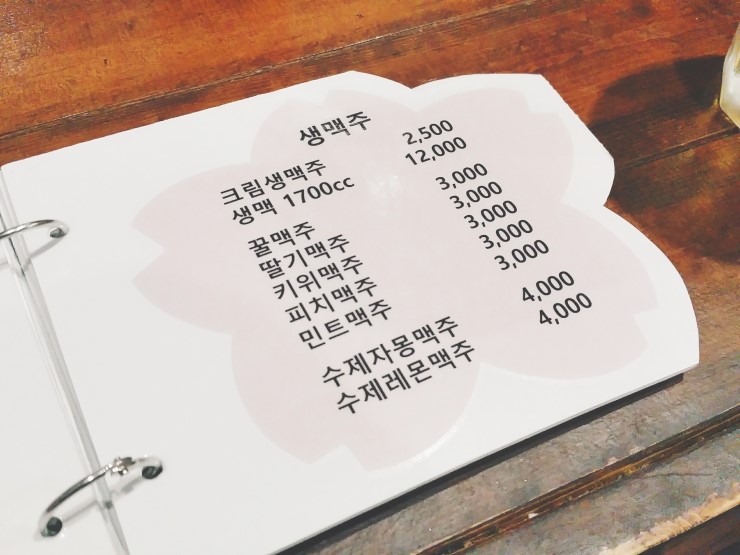 생맥주
크림생맥주 2,500
생맥 1700cc 12,000
꿀맥주 3,000
딸기맥주 3,000
키위맥주 3,000
피치맥주 3,000
민트맥주 3,000
수제자몽맥주 4,000
수제레몬맥주 4,000